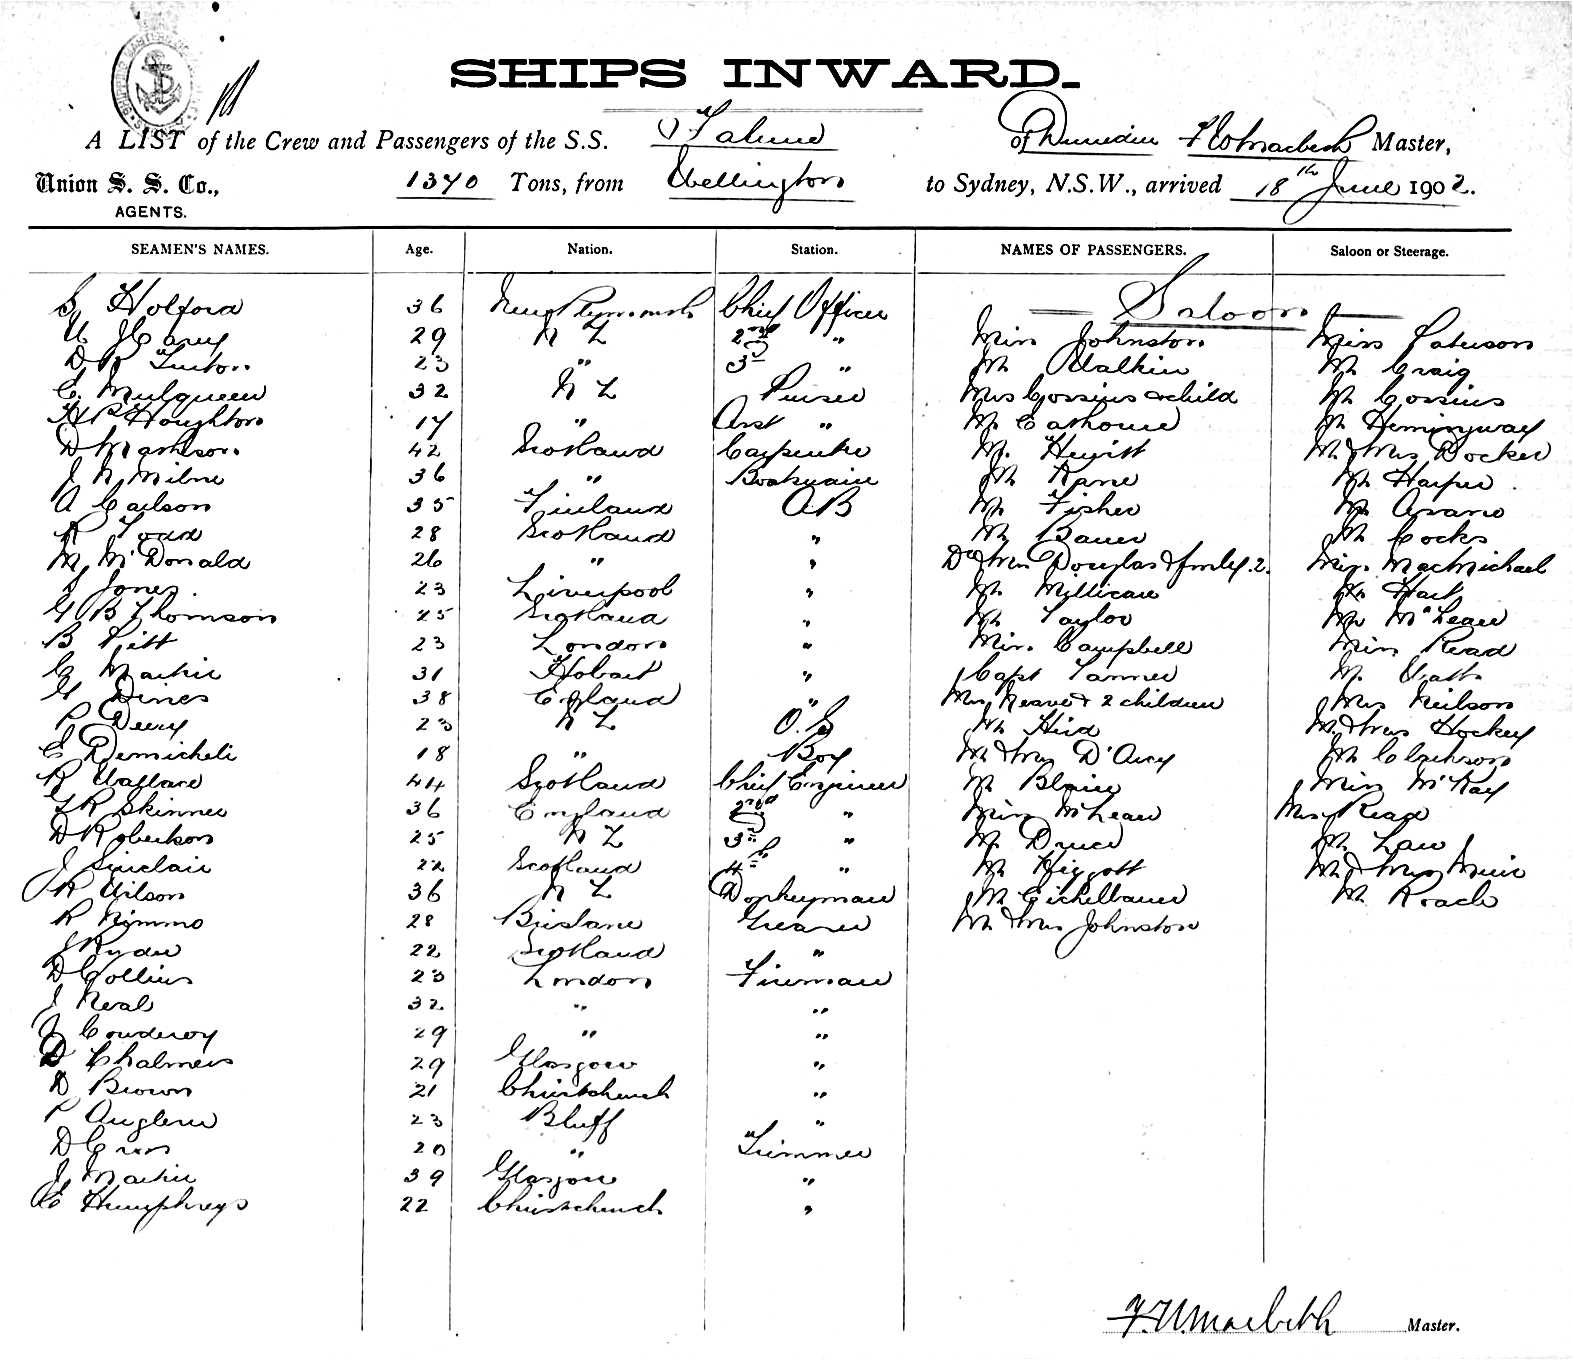 SHIPS INWARD.
A LIST of the Crew and Passengers of the S.S. Talune of Dunedin Macbeth Master,
Union S. S. Co., 1370 Tons, from Wellington to Sydney, N.S.W., arrived 18th June 1902.
AGENTS.
SEAMEN'S NAMES. Age. Nation. Station. NAMES OF PASSENGERS. Saloon or Steerage.
Saloon
S Holford 36 New Plymouth Chief Officer
W J Carey 29 N Z 2nd " Miss Johnston Miss Paterson
D R 23 " 3rd " Mr Walkin Mr Craig
E. Mulqueen 32 N Z Purser Mrs Cossins & child Mr Cossins
H P Houghton 17 " Asst " Mr Cathorne Mr Hemingway
D Mathson 42 Scotland Carpenter Mr. Hewitt Mr & Mrs Docker
J N Milne 36 " Boatswain Mr Kane Mr Harper
A Carlson 35 Finland AB Mr Fisher Mr Asano
R Todd 28 Scotland " Mr Bauer Mr Cocks
M McDonald 26 " " Dr & Mrs Douglas & fmly. 2. Miss MacMichael
S Jones 23 Liverpool " Mr Millican Mr Hart
G B Thomson 25 Scotland " Mr Taylor Mr McLean
B Pitt 23 London " Miss Campbell Miss Read
G Mackie 31 Hobart " Capt Tanner Mr Watt
G Dines 38 England " Mrs Neave & 2 children Mrs Neilson
P Deery 23 N Z O.S Mr Hird Mr & Mrs Hockey
E Demicheli 18 " Boy Mr & Mrs D'Arcy Mr Clarkson
R Wallace 44 Scotland Chief Engineer Mr Blair Miss McKay
F R Skinner 36 England 2nd " Miss McLean Mrs Read
D Robertson 25 N Z 3rd " Mr Druce Mr Law
J Sinclair 22 Scotland 4th " Mr Higgott Mr & Mrs Muir
R Wilson 36 N Z Donkeyman Mr Eichelbaum Mr Roach
R Nimmo 28 Brisbane Greaser Mr & Mrs Johnston
J Ryder 22 Scotland "
D Collins 23 London Fireman
J Neal 32 " "
J Cowderoy 29 " "
D Chalmers 29 Glasgow "
D Brown 21 Christchurch "
P Anglem 23 Bluff "
D 20 " Trimmer
J Mackie 39 Glasgow "
E Humphreys 22 Christchurch "
Macbeth Master.